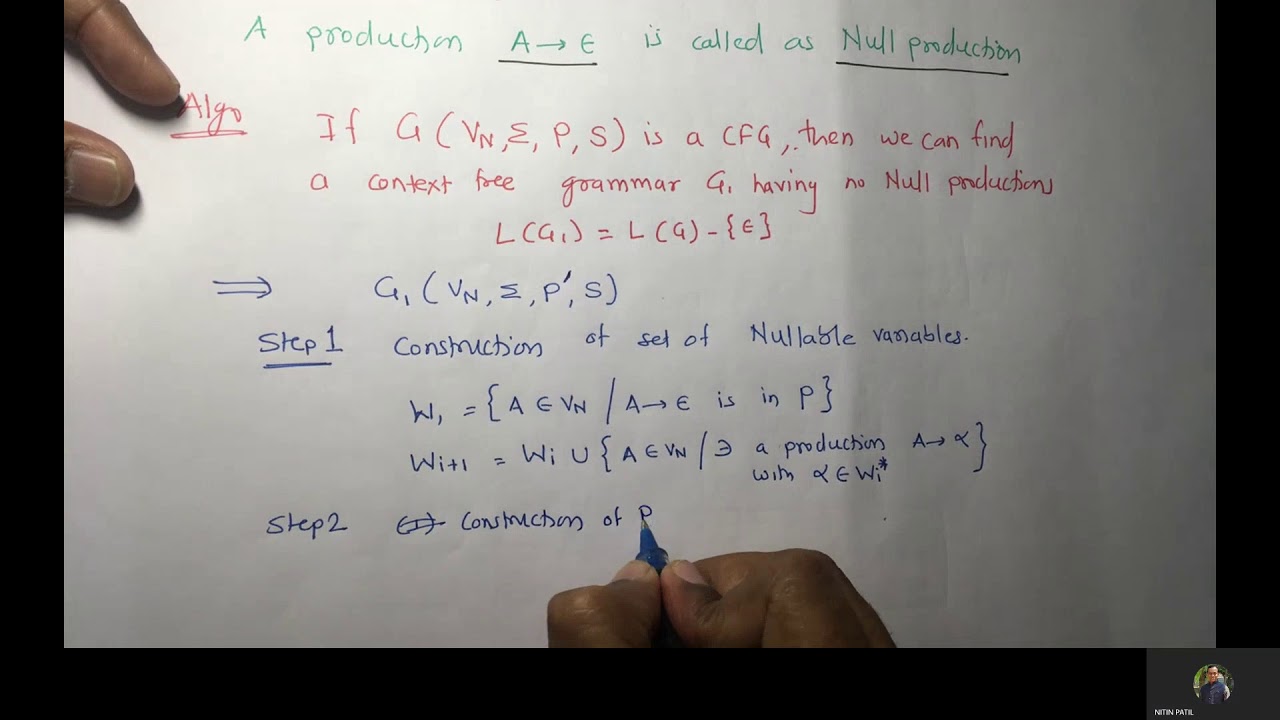 A production A → ϵ is called as Null production
Algo If G (VN, Σ, P, S) is a CFG, then we can find
a context free grammar G1 having no Null productions
L(G1) = L(G) - {ϵ}
⇒ G1 (VN, Σ, P', S)
Step 1 Construction of set of Nullable variables.
W1 = {A ∈ VN / A → ϵ is in P}
Wi+1 = Wi ∪ {A ∈ VN / ∃ a production A → α
with α ∈ Wi*}
Step 2 Construction of P
NITIN PATIL